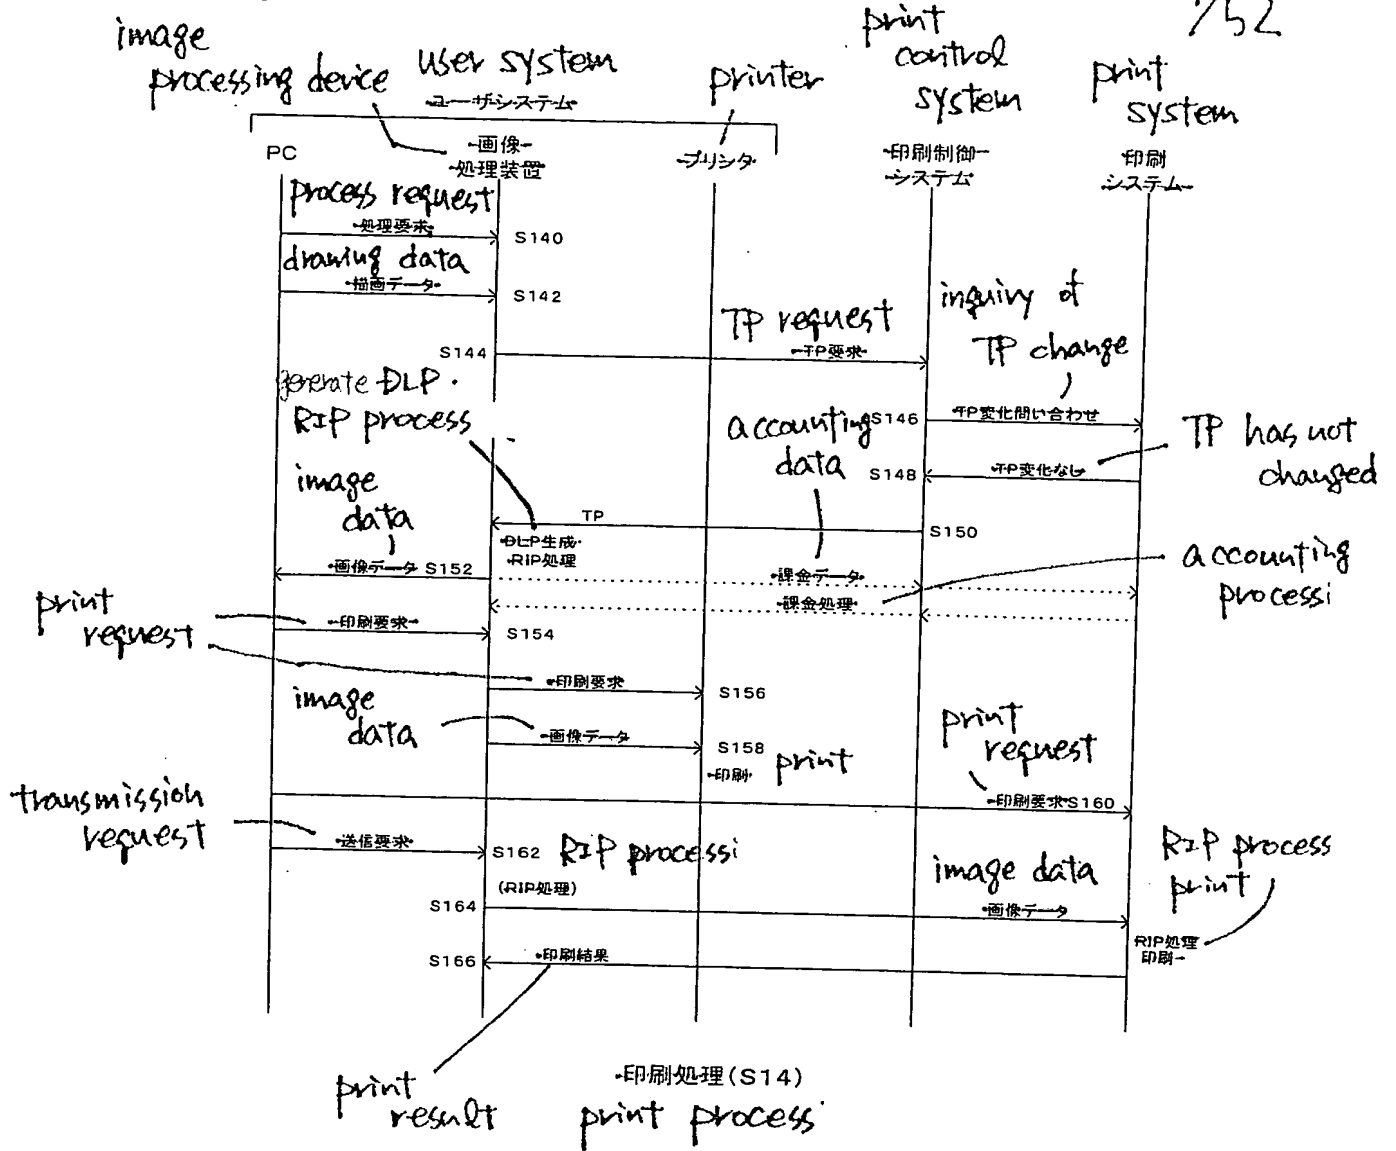 image
processing device
user system
ユーザシステム
printer
print
control
system
print
system
7/52
PC
画像
処理装置
プリンタ
印刷制御
システム
印刷
システム
process request
処理要求
S140
drawing data
描画データ
S142
TP request
S144
TP要求
inquiry of
TP change
generate DLP・
RIP process
accounting
data
S146
TP変化問い合わせ
TP has not
changed
S148
TP変化なし
image
data
TP
S150
DLP生成・
RIP処理
画像データ S152
課金データ
課金処理
accounting
processi
print
request
印刷要求
S154
印刷要求
S156
image
data
画像データ
S158
印刷
print
print
request
印刷要求 S160
transmission
request
送信要求
S162
RIP processi
(RIP処理)
image data
RIP process
print
S164
画像データ
RIP処理
印刷
S166
印刷結果
print
result
印刷処理(S14)
print process